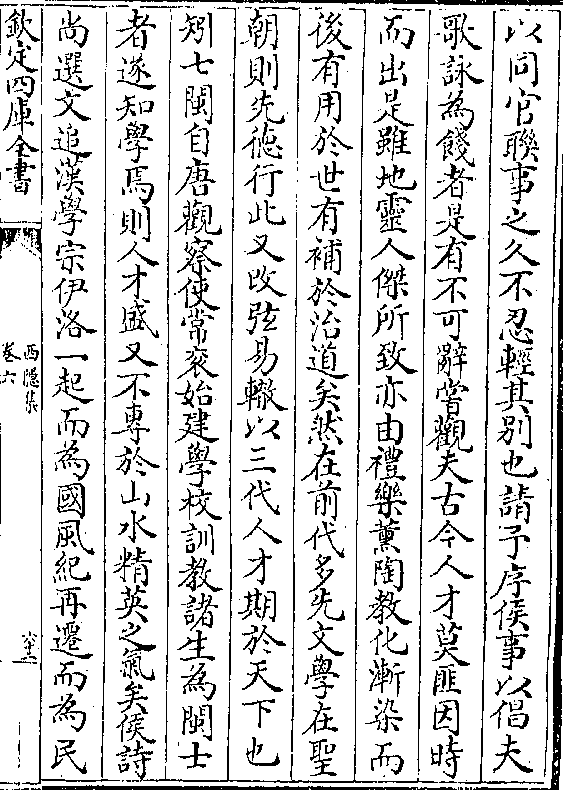 以同官聯事之久不忍輕其别也請予序侯事以倡夫
歌詠為餞者是有不可辭嘗觀夫古今人才莫匪因時
而出是雖地靈人傑所致亦由禮樂薰陶教化漸染而
後有用於世有補於治道矣然在前代多先文學在聖
朝則先德行此又改弦易轍以三代人才期於天下也
矧七閩自唐觀察使常衮始建學校訓教諸生為閩士
者遂知學焉則人才盛又不專於山水精英之氣矣侯詩
尚選文追漢學宗伊洛一起而為國風紀再遷而為民
欽定四庫全書
西隠集
卷六
六十三